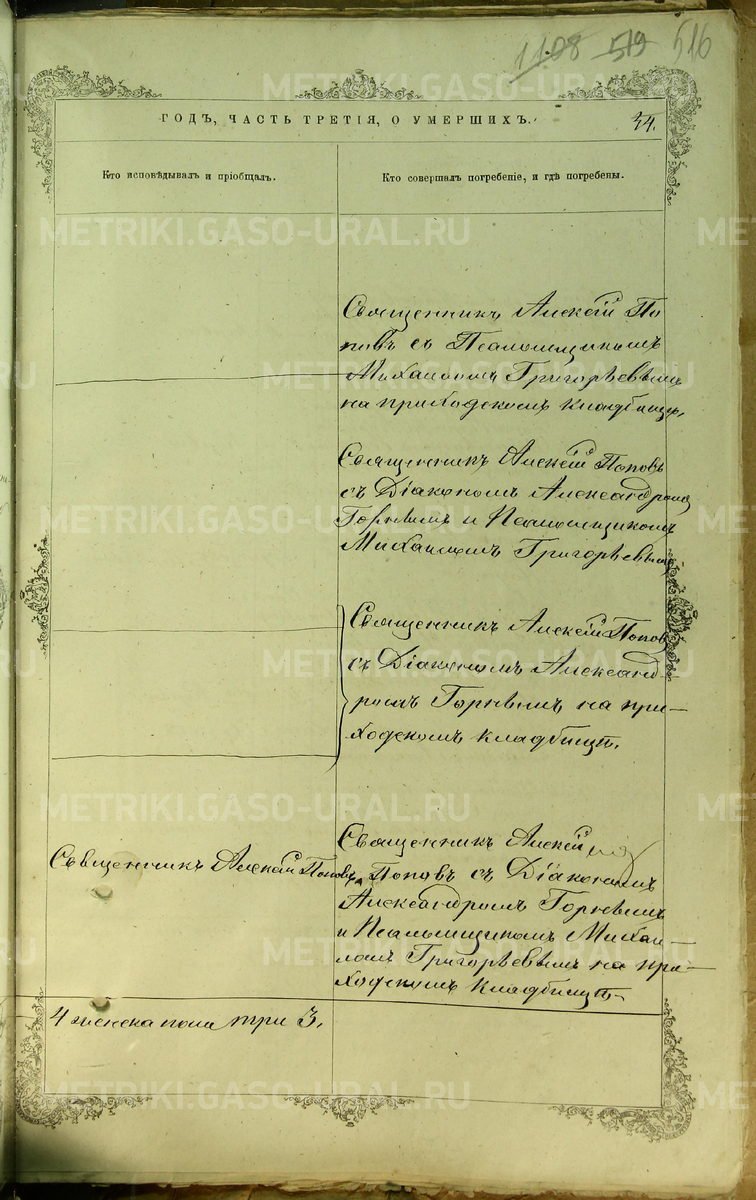 1108 519 516
ГОДЪ, ЧАСТЬ ТРЕТІЯ, О УМЕРШИХЪ.
34.
Кто исповѣдывалъ и пріобщалъ.
Кто совершалъ погребеніе, и гдѣ погребены.
Священникъ Алексій По
повъ съ Псаломщикомъ
Михаиломъ Григорьевымъ
на приходскомъ кладбищѣ.
Священникъ Алексій Поповъ
съ Діакономъ Александромъ
и Псаломщикомъ
Михаиломъ Григорьевымъ
Священникъ Алексій Поповъ
съ Діакономъ Александ
ромъ на при—
ходскомъ кладбищѣ.
Священникъ Алексій Поповъ
Священникъ Алексій
Поповъ съ Діакономъ
Александромъ
и Псаломщикомъ Михаи—
ломъ Григорьевымъ на при—
ходскомъ кладбищѣ.
4 женска пола три 3.
METRIKI.GASO-URAL.RU